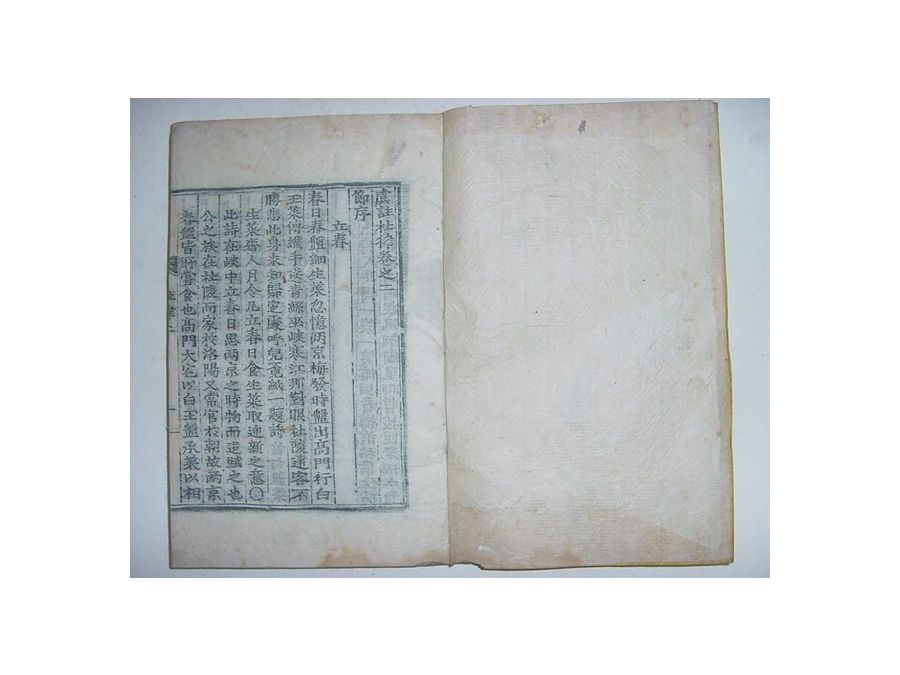 虞註杜律卷之二
節序
立春
春日春盤細生菜忽憶兩京梅發時盤出髙門行白
玉菜傳纖手送青絲巫峽寒江那對眼杜陵遠客不
勝悲此身未知歸定處呼兒覔紙一題詩
生菜齊人月令凡立春日食生菜取迎新之意○
此詩在峽中立春日思兩京之時物而追賦之也
公之族在杜陵而家於洛陽又常官於朝故兩京
春盤皆所嘗食也髙門大宅以白玉盤承菜以相